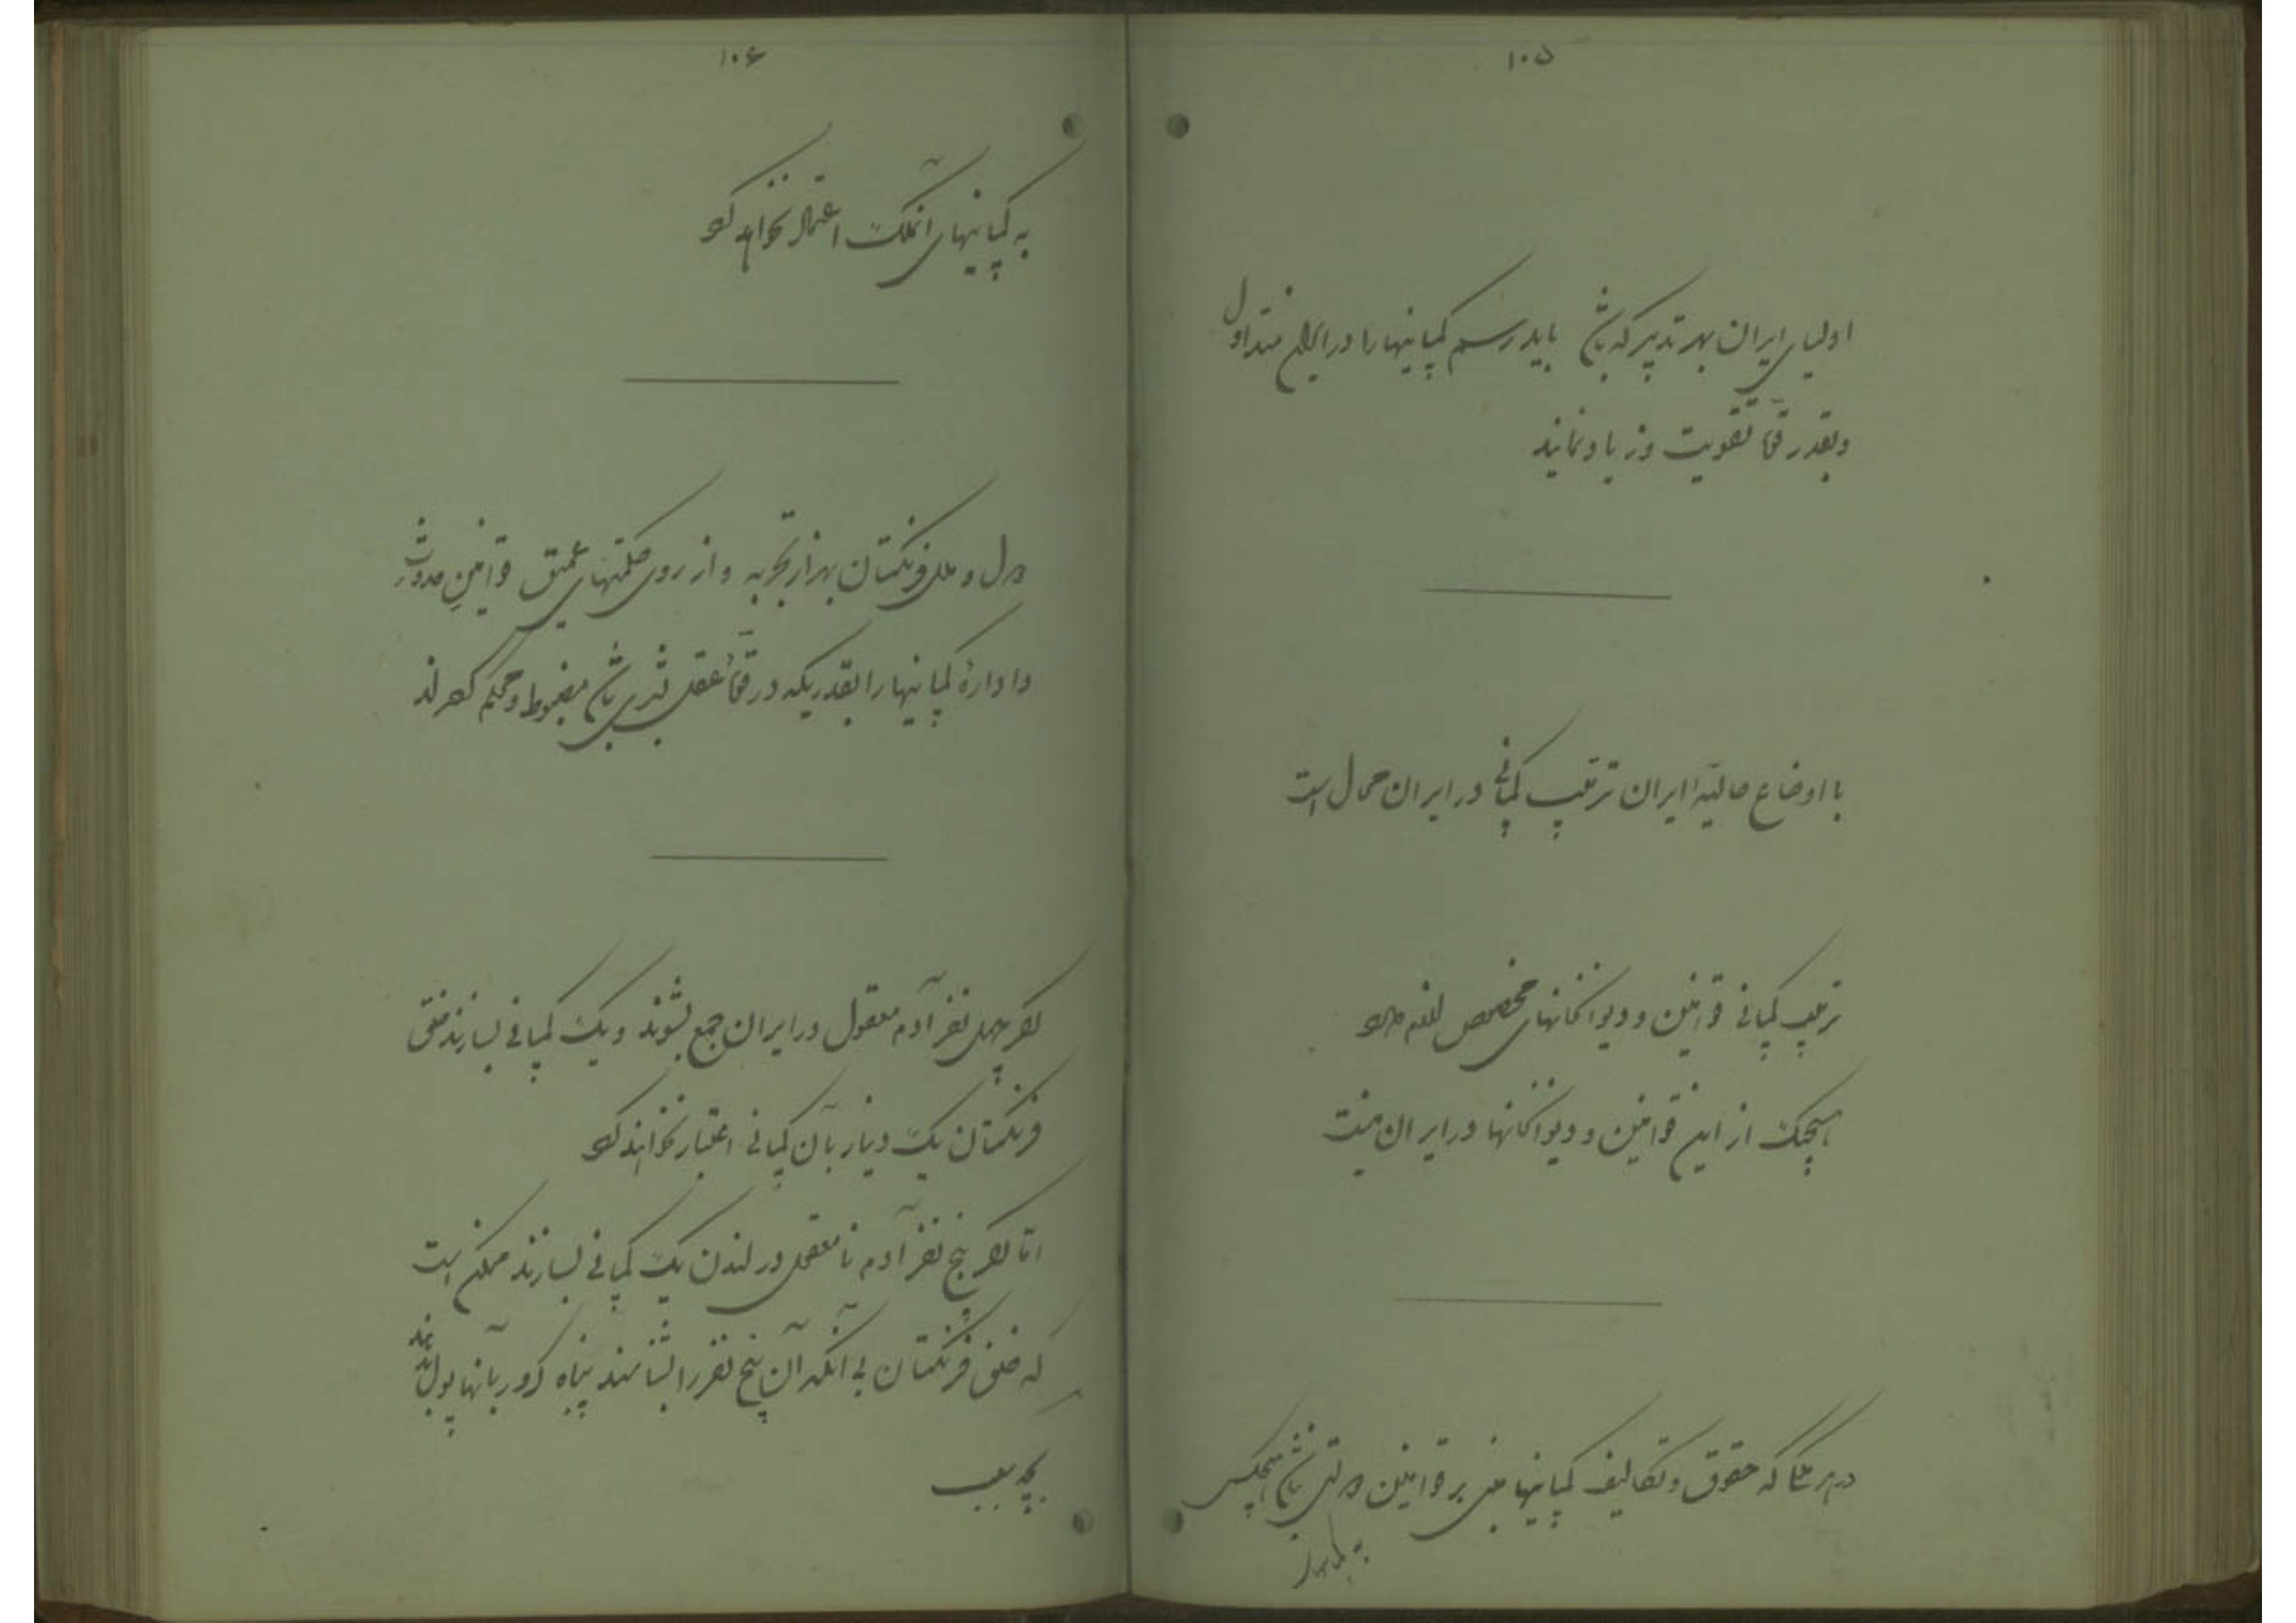 ۱۰۵
اولیای ایران بهر تدبیر که باشد باید رسم کمپانیها را در ایران متداول
و بقدر قوّه تقویت و زیاد نمایند
با اوضاع حالیهٔ ایران ترتیب کمپانی در ایران محال است
ترتیب کمپانی قوانین و دیوانخانهای مخصوص لازم دارد
هیچیک از این قوانین و دیوانخانها در ایران نیست
در هر ملکی که حقوق و تکالیف کمپانیها مبنی بر قوانین دولتی نباشد هیچکس
۱۰۶
به کمپانیهای آنملک اعتماد نخواهد کرد
دول و ملل فرنگستان بهزار تجربه و از روی حکمتهای عمیق قوانینِ
و ادارهٔ کمپانیها را بقدریکه در قوّهٔ عقل بشری باشد مضبوط و محکم کرده‌اند
اگر چهل نفر آدم معقول در ایران جمع بشوند و یک کمپانی بسازند خلق
فرنگستان یک دینار بآن کمپانی اعتبار نخواهند کرد
امّا اگر پنج نفر آدم نامعقول در لندن یک کمپانی بسازند ممکن است
که خلق فرنگستان بی آنکه آن پنج نفر را بشناسند پنجاه کرور بآنها پول بدهند
بچه سبب